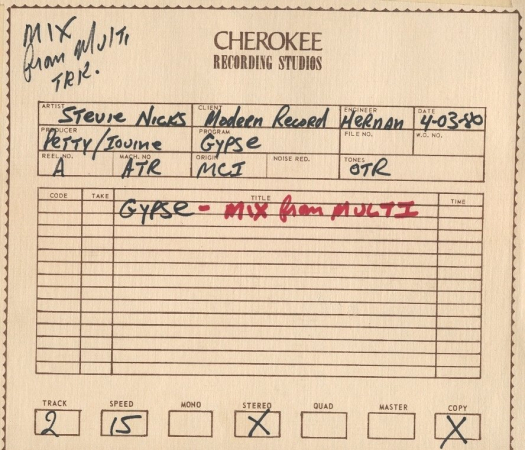 MIX
from MULTI
TRK.
CHEROKEE
RECORDING STUDIOS
ARTIST CLIENT ENGINEER DATE
Stevie Nicks Modern Record HERNAN 4-03-80
PRODUCER PROGRAM FILE NO. W.O. NO.
Petty/Iovine GYPSE
REEL NO. MACH. NO ORIGIN NOISE RED. TONES
A ATR MCI OTR
CODE TAKE TITLE TIME
GYPSE - MIX from MULTI
TRACK SPEED MONO STEREO QUAD MASTER COPY
2 15 X X